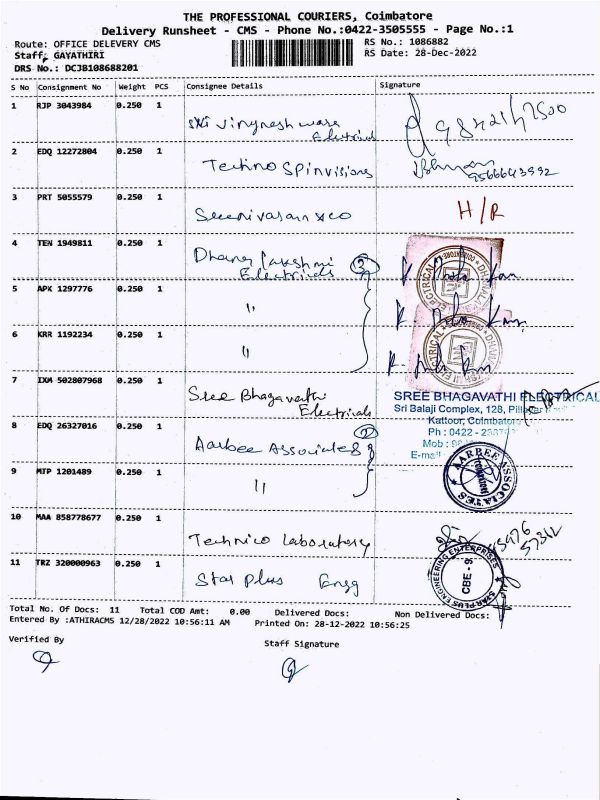 THE PROFESSIONAL COURIERS, Coimbatore
Delivery Runsheet - CMS - Phone No.:0422-3505555 - Page No.:1
Route: OFFICE DELEVERY CMS
RS No.: 1086882
Staff: GAYATHIRI
RS Date: 28-Dec-2022
DRS No.: DCJB108688201
S No Consignment No Weight PCS Consignee Details Signature
1 RJP 3043984 0.250 1
Electricals
2 EDQ 12272804 0.250 1 Techno Spinvisions
9566643992
3 PRT 5055579 0.250 1 Sreenivasan & co H/R
4 TEN 1949811 0.250 1 Dhana lakshmi
Electricals 3
5 APK 1297776 0.250 1 "
6 KRR 1192234 0.250 1 "
7 IXM 502807968 0.250 1 Sree Bhagavathi
Electricals
SREE BHAGAVATHI ELECTRICAL
Sri Balaji Complex, 128,
Kattoor, Coimbatore
Ph : 0422 -
Mob :
E-mail
8 EDQ 26327016 0.250 1 Aarbee Associates 2
AARBEE ASSOCIATES
9 MTP 1201489 0.250 1 "
10 MAA 858778677 0.250 1 Technico Laboratory
11 TRZ 320000963 0.250 1 Star Plus Engg
STAR PLUS ENGINEERING ENTERPRISES
Total No. Of Docs: 11 Total COD Amt: 0.00 Delivered Docs: Non Delivered Docs:
Entered By :ATHIRACMS 12/28/2022 10:56:11 AM Printed On: 28-12-2022 10:56:25
Verified By Staff Signature